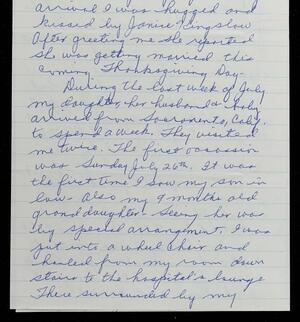 arrival I was hugged and
kissed by Janice Kingslow
After greeting me she reported
she was getting married this
coming Thanksgiving Day-
During the last week of July
my daughter, her husband & baby
arrived from Sacramento, Calif.
to spend a week. They visited
me twice. The first occassion
was Sunday July 26th. It was
the first time I saw my son in
law- Also my 9 months old
grand daughter- Seeing her was
by special arrangement. I was
put into a wheel chair and
hauled from my room down
stairs to the hospital's lounge
There surrounded by my